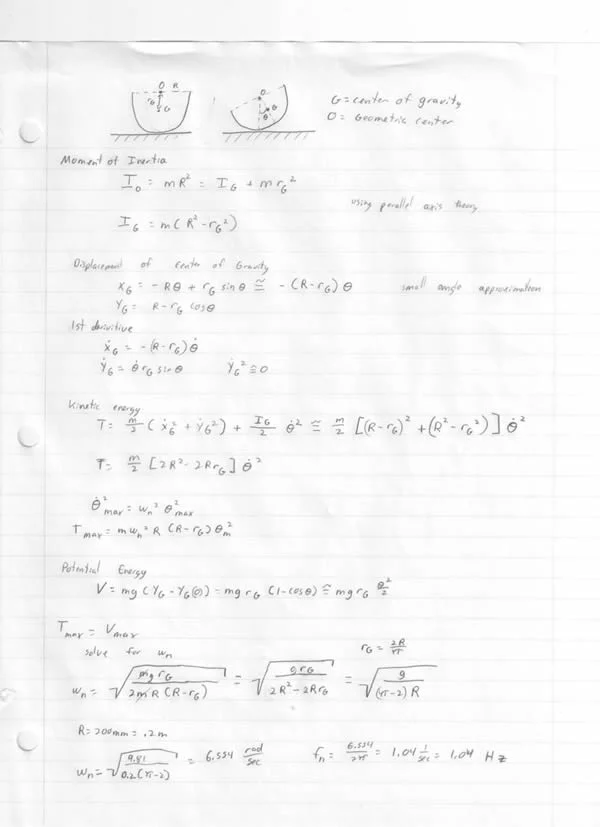 O R
r_G
G
O
G
θ
G = center of gravity
O = Geometric center
Moment of Inertia
I_o = mR² = I_G + m r_G²
using parallel axis theory
I_G = m(R² - r_G²)
Displacement of center of Gravity
x_G = -Rθ + r_G sin θ ≅ -(R-r_G) θ small angle approximation
Y_G = R - r_G cos θ
1st derivitive
ẋ_G = -(R-r_G) θ̇
Ẏ_G = θ̇ r_G sin θ Ẏ_G² ≅ 0
Kinetic energy
T = m/2 (ẋ_G² + Ẏ_G²) + I_G/2 θ̇² ≅ m/2 [(R-r_G)² + (R²-r_G²)] θ̇²
T = m/2 [2R² - 2Rr_G] θ̇²
θ̇²max = w_n² θ²max
Tmax = m w_n² R (R-r_G) θ_m²
Potential Energy
V = mg (Y_G - Y_G(0)) = mg r_G (1-cosθ) ≅ mg r_G θ²/2
Tmax = Vmax
solve for w_n r_G = 2R/π
w_n = √(mg r_G / 2mR (R-r_G)) = √(g r_G / 2R² - 2Rr_G) = √(g / (π-2) R)
R = 200mm = .2m
w_n = √(9.81 / 0.2(π-2)) = 6.554 rad/sec f_n = 6.554/2π = 1.04 1/sec = 1.04 Hz